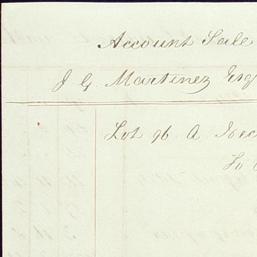 Account Sale
J G Martinez Esq
Lot 96 A
To